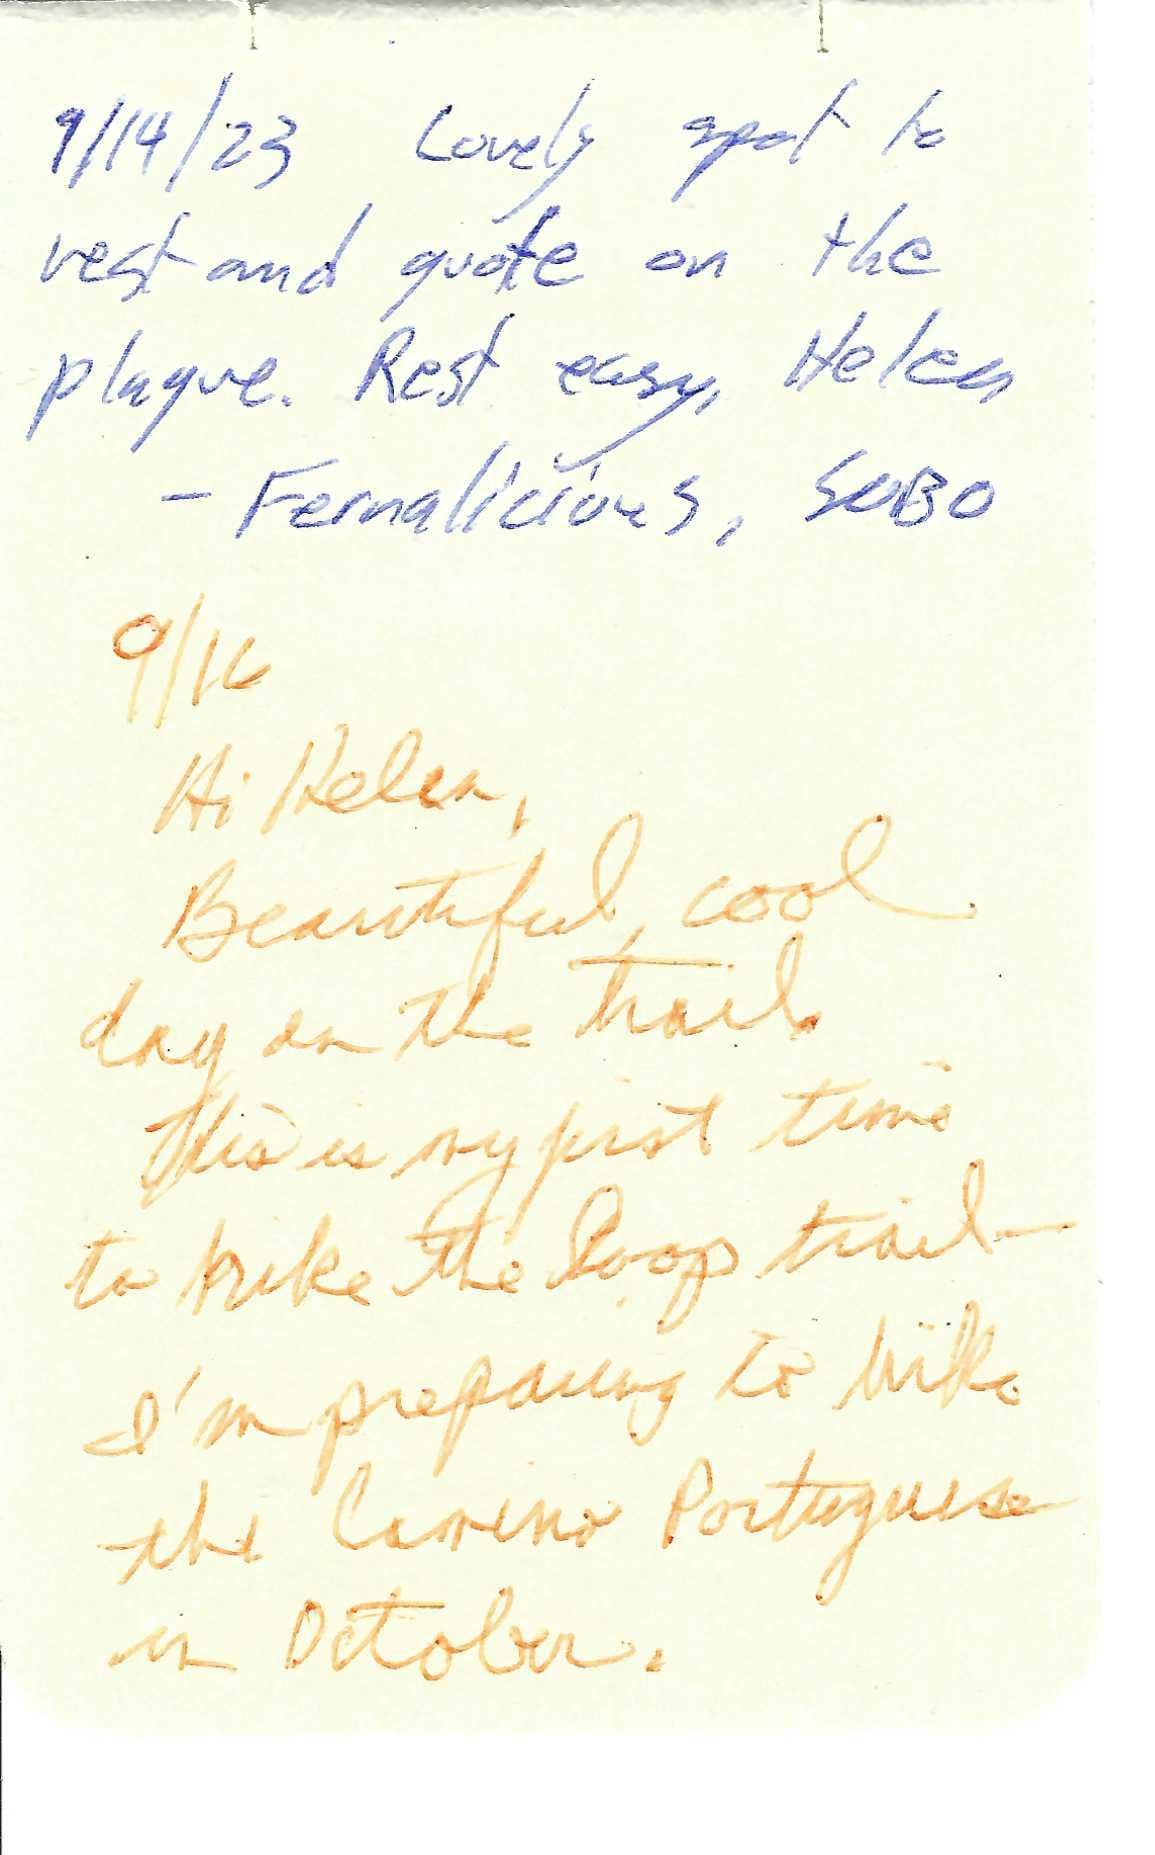 9/14/23 Lovely spot to
rest and quote on the
plaque. Rest easy, Helen
- Fernalicious, SOBO
9/16
Hi Helen,
Beautiful, cool
day on the trail.
This is my first time
to hike the loop trail-
I'm preparing to hike
the Camino Portuguese
in October.